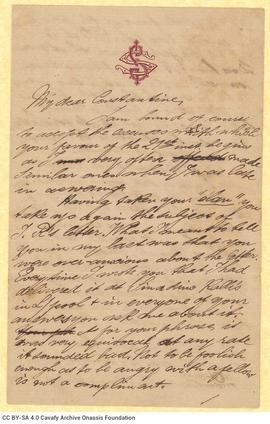 My dear Constantine,
I am bound of course
to accept the excuses which
your favour of the 27th inst. begins
as I very often made
similar ones when I was late
in answering.
Having taken your "élan" you
take up again the subject of
J. R's letter. What I meant to tell
you in my last was that you
were over-anxious about the letter.
Every time I wish you that I had
delivered it at
in L'pool & in everyone of your
answers you ask me about it.
As for your phrase, it
was very equivocal at any rate
it sounded bad. Not to be foolish
enough as to be angry with a fellow
is not a compliment.
CC BY-SA 4.0 Cavafy Archive Onassis Foundation